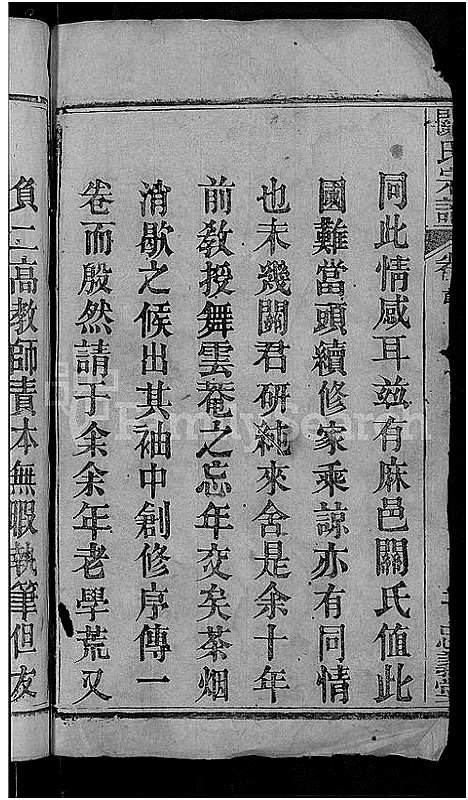 關氏宗譜 卷首 忠義堂
同此情感耳茲有麻邑關氏值此
國難當頭續修家乘諒亦有同情
也未幾關君研純來舍是余十年
前敎授舞雲菴之忘年交矣茶烟
消歇之候出其袖中創修序傳一
卷而殷然請于余余年老學荒又
負二高教師責本無暇執筆但友
FamilySearch